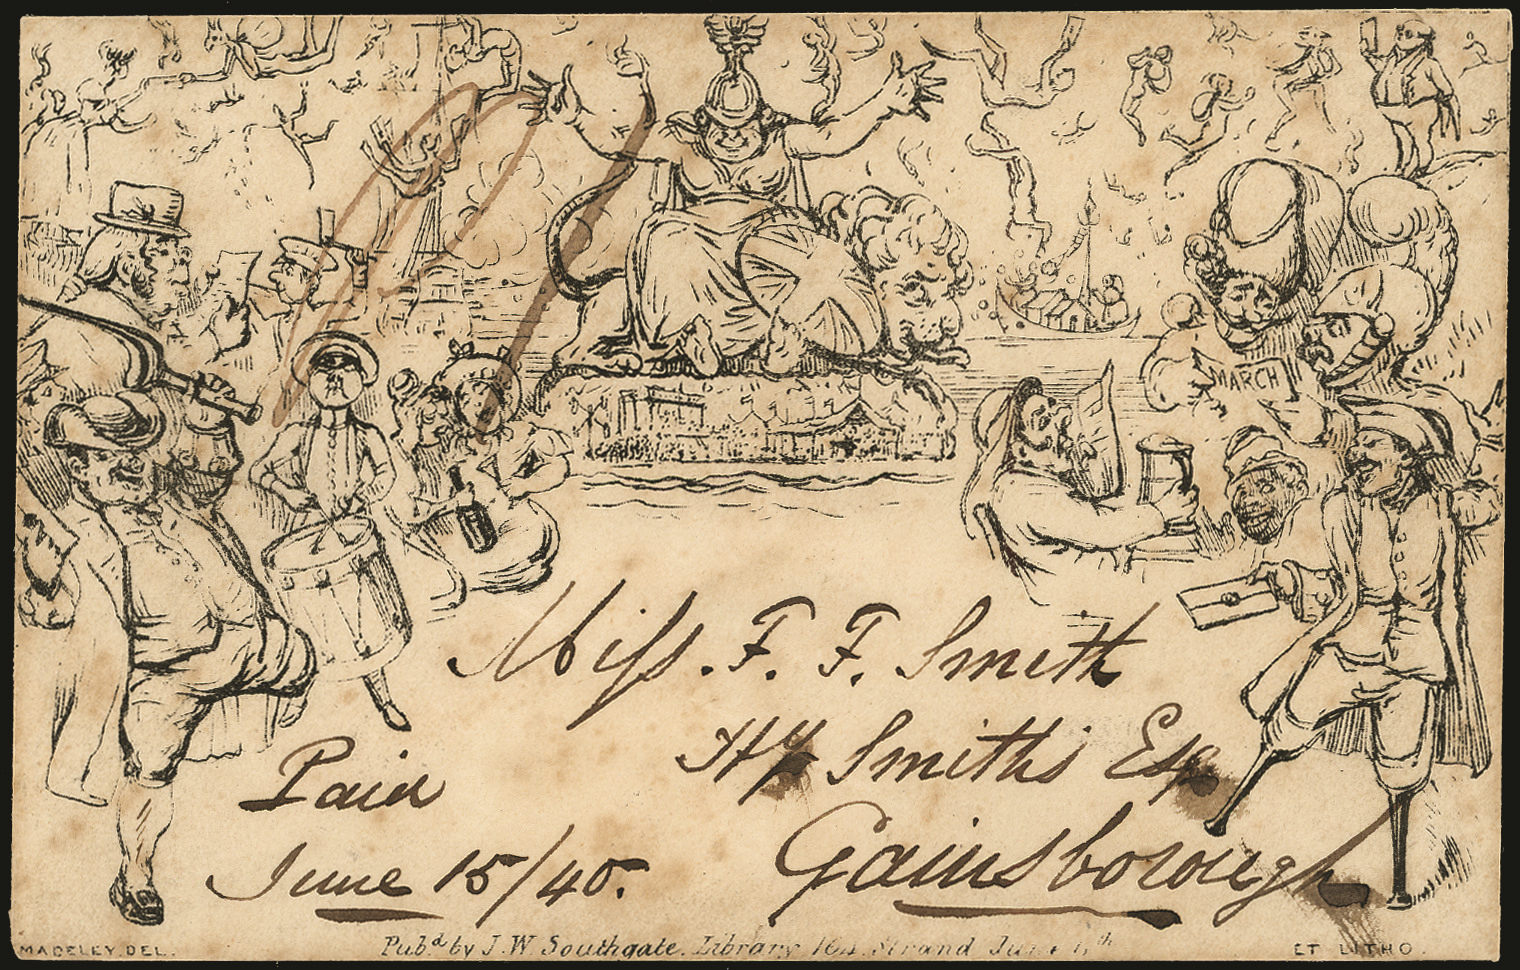 MARCH
Miss. F. F. Smith
Hy Smith's Esq
Paid
Gainsborough
June 15/40.
MADELEY DEL.
Pubd by J. W. Southgate. Library 164. Strand June
ET LITHO.